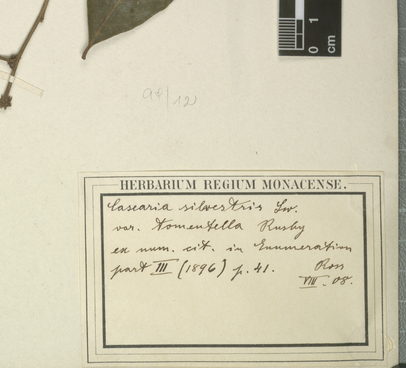 0 1
cm
HERBARIUM REGIUM MONACENSE.
Casearia silvestris Sw.
var. tomentella Rusby
ex num. cit. in Enumeration
part III (1896) p. 41. Ross
VIII. 08.